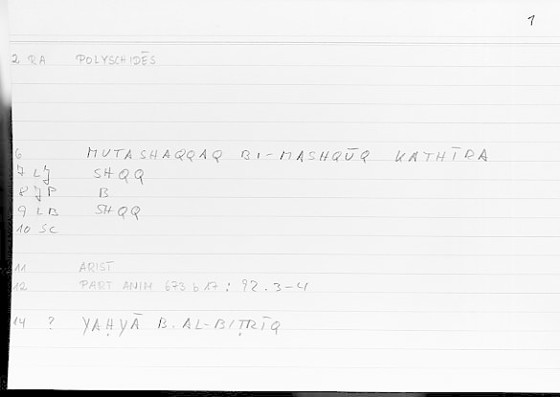 1
2 RA POLYSCHIDĒS
6 MUTASHAQQAQ BI-MASHQŪQ KATHĪRA
7 LJ SHQQ
8 JP B
9 LB SHQQ
10 SC
11 ARIST
12 PART ANIM 673 b 17 : 92.3-4
14 ? YAḤYĀ B. AL-BIṬRĪQ